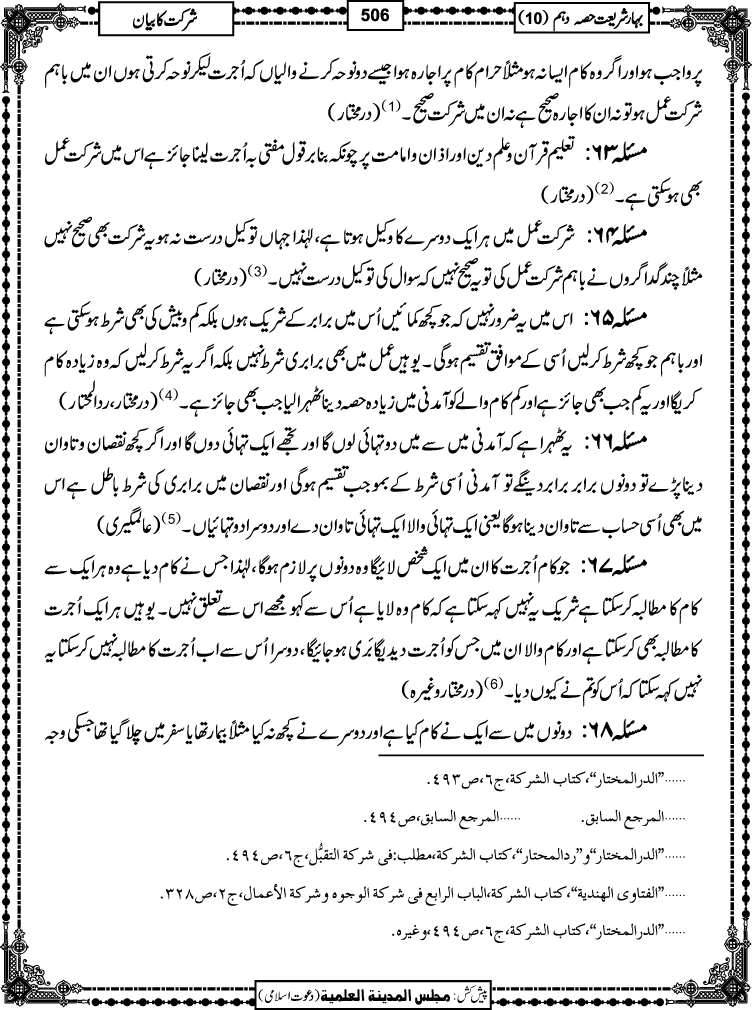 بہارِ شریعت حصہ دہم (10)
506
شرکت کا بیان
پر واجب ہو اور اگر وہ کام ایسا نہ ہو مثلاً حرام کام پر اجارہ ہوا جیسے دو نوحہ کرنے والیاں کہ اُجرت لیکر نوحہ کرتی ہوں ان میں باہم
شرکت عمل ہو تو نہ ان کا اجارہ صحیح ہے نہ ان میں شرکت صحیح۔(1) (درمختار)
مسئلہ ۶۳: تعلیم قرآن و علم دین اور اذان وامامت پر چونکہ بنا بر قول مفتی بہ اُجرت لینا جائز ہے اس میں شرکت عمل
بھی ہو سکتی ہے۔(2) (درمختار)
مسئلہ ۶۴: شرکت عمل میں ہر ایک دوسرے کا وکیل ہوتا ہے، لہٰذا جہاں توکیل درست نہ ہو یہ شرکت بھی صحیح نہیں
مثلاً چند گداگروں نے باہم شرکت عمل کی تو یہ صحیح نہیں کہ سوال کی توکیل درست نہیں۔(3) (درمختار)
مسئلہ ۶۵: اس میں یہ ضرور نہیں کہ جو کچھ کمائیں اُس میں برابر کے شریک ہوں بلکہ کم و بیش کی بھی شرط ہو سکتی ہے
اور باہم جو کچھ شرط کرلیں اُسی کے موافق تقسیم ہوگی۔ یوہیں عمل میں بھی برابری شرط نہیں بلکہ اگر یہ شرط کرلیں کہ وہ زیادہ کام
کریگا اور یہ کم جب بھی جائز ہے اور کم کام والے کو آمدنی میں زیادہ حصہ دینا ٹھہرا لیا جب بھی جائز ہے۔(4) (درمختار، ردالمحتار)
مسئلہ ۶۶: یہ ٹھہرا ہے کہ آمدنی میں سے میں دو تہائی لوں گا اور تجھے ایک تہائی دوں گا اور اگر کچھ نقصان و تاوان
دینا پڑے تو دونوں برابر برابر دینگے تو آمدنی اُسی شرط کے بموجب تقسیم ہوگی اور نقصان میں برابری کی شرط باطل ہے اس
میں بھی اُسی حساب سے تاوان دینا ہوگا یعنی ایک تہائی والا ایک تہائی تاوان دے اور دوسرا دو تہائیاں۔(5) (عالمگیری)
مسئلہ ۶۷: جو کام اُجرت کا ان میں ایک شخص لائیگا وہ دونوں پر لازم ہوگا، لہٰذا جس نے کام دیا ہے وہ ہر ایک سے
کام کا مطالبہ کرسکتا ہے شریک یہ نہیں کہہ سکتا ہے کہ کام وہ لایا ہے اُس سے کہو مجھے اس سے تعلق نہیں۔ یوہیں ہر ایک اُجرت
کا مطالبہ بھی کرسکتا ہے اور کام والا ان میں جس کو اُجرت دیدیگا بَری ہو جائیگا، دوسرا اُس سے اب اُجرت کا مطالبہ نہیں کرسکتا یہ
نہیں کہہ سکتا کہ اُس کو تم نے کیوں دیا۔(6) (درمختار وغیرہ)
مسئلہ ۶۸: دونوں میں سے ایک نے کام کیا ہے اور دوسرے نے کچھ نہ کیا مثلاً بیمار تھا یا سفر میں چلا گیا تھا جسکی وجہ
......”الدرالمختار“، کتاب الشرکۃ، ج٦، ص٤٩٣.
......المرجع السابق. ......المرجع السابق، ص٤٩٤.
......”الدرالمختار“و”ردالمحتار“، کتاب الشرکۃ، مطلب: فی شرکۃ التقبُّل، ج٦، ص٤٩٤.
......”الفتاوی الھندیۃ“، کتاب الشرکۃ، الباب الرابع فی شرکۃ الوجوہ وشرکۃ الأعمال، ج٢، ص٣٢٨.
......”الدرالمختار“، کتاب الشرکۃ، ج٦، ص٤٩٤، وغیرہ.
پیش کش: مجلس المدینۃ العلمیۃ (دعوت اسلامی)